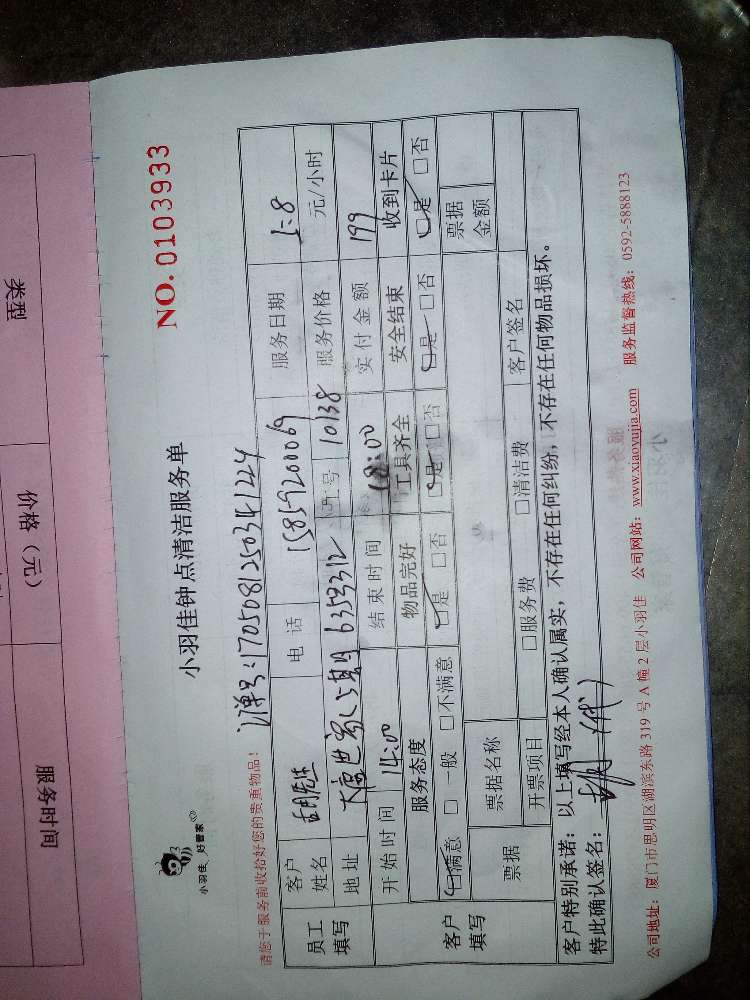 小羽佳 好管家
小羽佳钟点清洁服务单
NO.0103933
请您于服务前收拾好您的贵重物品!
订单号:1705081250341224
员工填写
客户姓名 胡先生 电话 15859200069 服务日期 5.8
地址 大唐世家 6353312 工号 10138 服务价格 元/小时
开始时间 14:00 结束时间 18:00 实付金额 199
客户填写
服务态度 物品完好 工具齐全 安全结束 收到卡片
☑满意 □一般 □不满意 ☑是 □否 ☑是 □否 ☑是 □否 ☑是 □否
票据 票据名称 票据金额
开票项目 □服务费 □清洁费 客户签名
客户特别承诺:以上填写经本人确认属实,不存在任何纠纷,不存在任何物品损坏。
特此确认签名:胡(代)
公司地址:厦门市思明区湖滨东路 319 号 A 幢 2 层小羽佳 公司网站:www.xiaoyujia.com 服务监督热线:0592-5888123
类型
价格(元)
服务时间